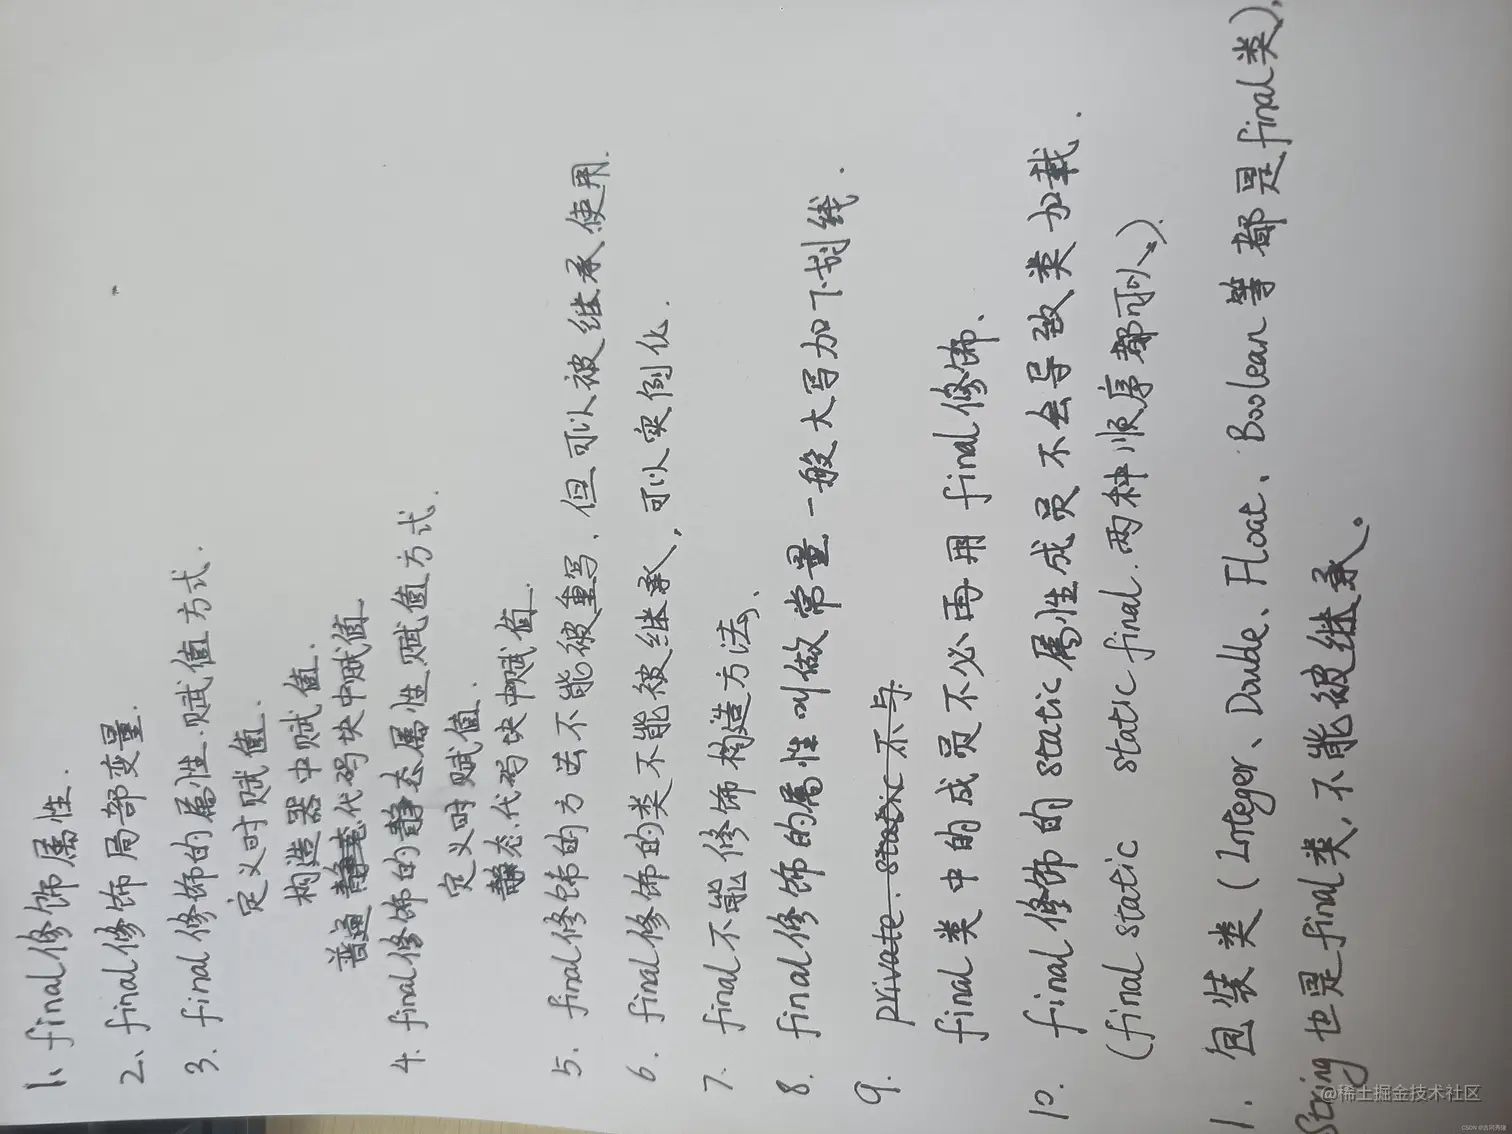 1、final修饰属性.
2、final修饰局部变量.
3. final修饰的属性.赋值方式.
定义时赋值.
构造器中赋值.
普通代码块中赋值
4. final修饰的静态属性赋值方式.
定义时赋值.
静态代码块中赋值.
5. final修饰的方法不能被重写.但可以被继承使用.
6. final修饰的类不能被继承,可以实例化.
7. final不能修饰构造方法、
8. final修饰的属性叫做常量一般大写加下划线.
9. private. static 不与
final类中的成员不必再用final修饰、
10. final修饰的static属性成员不会导致类加载.
(final static static final.两种顺序都可以).
1. 包装类(Integer、Double、Float、Boolean等都是final类),
String也是final类,不能被继承。
@稀土掘金技术社区